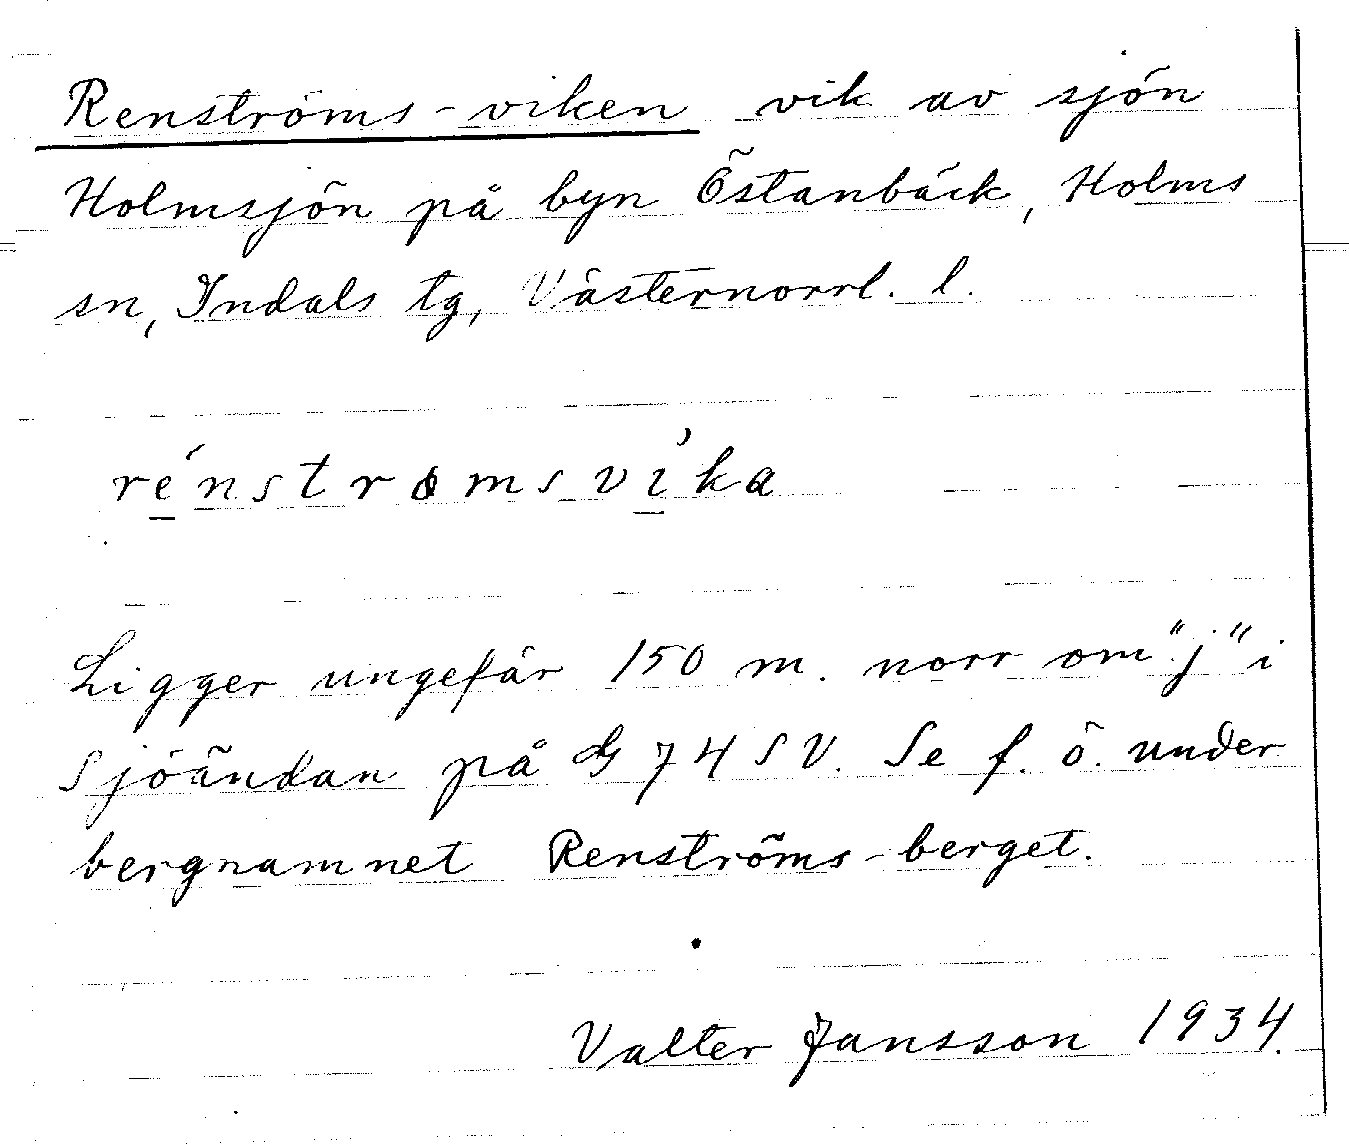 Renströms-viken vik av sjön
Holmsjön på byn Östanbäck, Holms
sn, Indals tg, Västernorrl. l.
ré̲nstrømsvì̲ka
Ligger ungefär 150 m. norr om "j" i
Sjöändan på G 74 SV. Se f. ö. under
bergnamnet Renströms-berget.
Valter Jansson 1934.